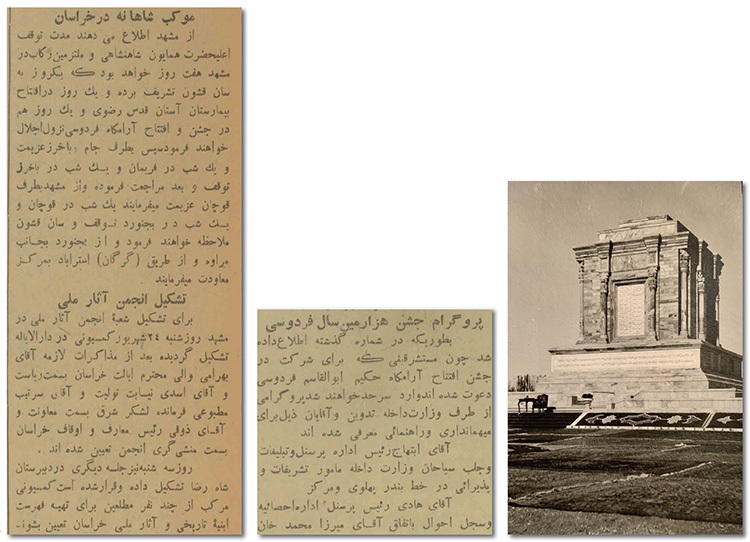 موکب شاهانه در خراسان
از مشهد اطلاع می دهند مدت توقف
اعلیحضرت همایون شاهنشاهی و ملتزمین رکاب در
مشهد هفت روز خواهد بود که یکروز به
سان قشون تشریف برده و یک روز در افتتاح
بیمارستان آستان قدس رضوی و یک روز هم
در جشن و افتتاح آرامگاه فردوسی نزول اجلال
خواهند فرمود سپس بطرف جام ؛ باخرز عزیمت
و یک شب در فریمان و یک شب در باخرز
توقف و بعد مراجعت فرموده و از مشهد بطرف
قوچان عزیمت میفرمایند یک شب در قوچان و
یک شب در بجنورد توقف و سان قشون
ملاحظه خواهند فرمود و از بجنورد بجانب
مراوه و از طریق (گرگان) استراباد بمرکز
معاودت میفرمایند .
تشکیل انجمن آثار ملی
برای تشکیل شعبۀ انجمن آثار ملی در
مشهد روز شنبه ۲۴ شهریور کمسیونی در دارالایاله
تشکیل گردیده بعد از مذاکرات لازمه آقای
بهرامی والی محترم ایالت خراسان بسمت ریاست
و آقای اسدی نیابت تولیت و آقای سرتیپ
مطبوعی فرمانده لشکر شرق بسمت معاونت و
آقای ذوقی رئیس معارف و اوقاف خراسان
بسمت منشی گری انجمن تعیین شده اند .
روز سه شنبه نیز جلسه دیگری در دبیرستان
شاه رضا تشکیل داده و قرار شده است کمسیونی
مرکب از چند نفر مطلعین برای تهیه فهرست
ابنیۀ تاریخی و آثار ملی خراسان تعیین بشود.
پروگرام جشن هزارمین سال فردوسی
بطوریکه در شماره گذشته اطلاع داده
شد چون مستشرقینی که برای شرکت در
جشن افتتاح آرامگاه حکیم ابوالقاسم فردوسی
دعوت شده اند وارد سرحد خواهند شد پروگرامی
از طرف وزارت داخله تدوین و آقایان ذیل برای
میهمانداری و راهنمائی معرفی شده اند
آقای ابتهاج رئیس اداره پرسنل و تبلیغات
و جلب سیاحان وزارت داخله مامور تشریفات و
پذیرائی در خط بندر پهلوی و مرکز
آقای هادی رئیس پرسنل اداره احصائیه
و سجل احوال باتفاق آقای میرزا محمد خان